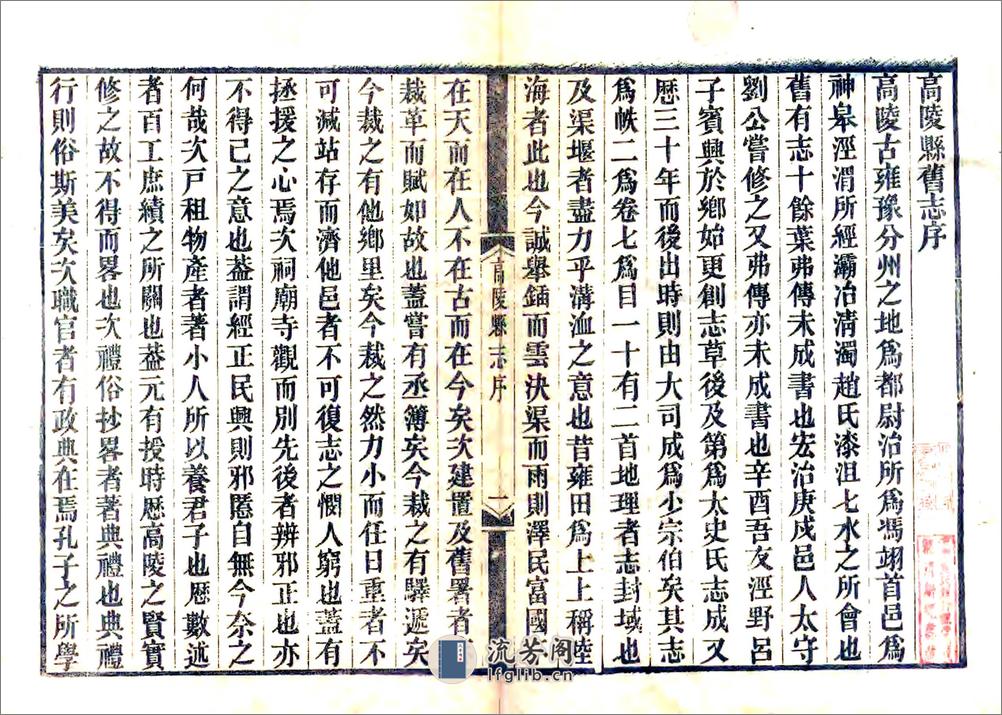 高陵縣舊志序
高陵古雍豫分州之地爲都尉治所爲馮翊首邑爲
神皋涇渭所經灞冶清濁趙氏漆沮七水之所會也
舊有志十餘葉弗傳未成書也宏治庚戌邑人太守
劉公嘗修之又弗傳亦未成書也辛酉吾友涇野呂
子賓興於鄉始更創志草後及第爲太史氏志成又
歷三十年而後出時則由大司成爲少宗伯矣其志
爲帙二爲卷七爲目一十有二首地理者志封域也
及渠堰者盡力乎溝洫之意也昔雍田爲上上稱陸
海者此也今誠舉鍤而雲決渠而雨則澤民富國
高陵縣志序
一
在天而在人不在古而在今矣次建置及舊署者
裁革而賦如故也蓋嘗有丞簿矣今裁之有驛遞矣
今裁之有他鄉里矣今裁之然力小而任日重者不
可減站存而濟他邑者不可復志之憫人窮也蓋有
拯援之心焉次祠廟寺觀而別先後者辨邪正也亦
不得已之意也蓋謂經正民興則邪慝自無今奈之
何哉次戶租物產者著小人所以養君子也歷數述
者百工庶績之所關也蓋元有授時歷高陵之賢實
修之故不得而畧也次禮俗抄畧者著典禮也典禮
行則俗斯美矣次職官者有政典在焉孔子之所學
流芳阁
lfglib.cn